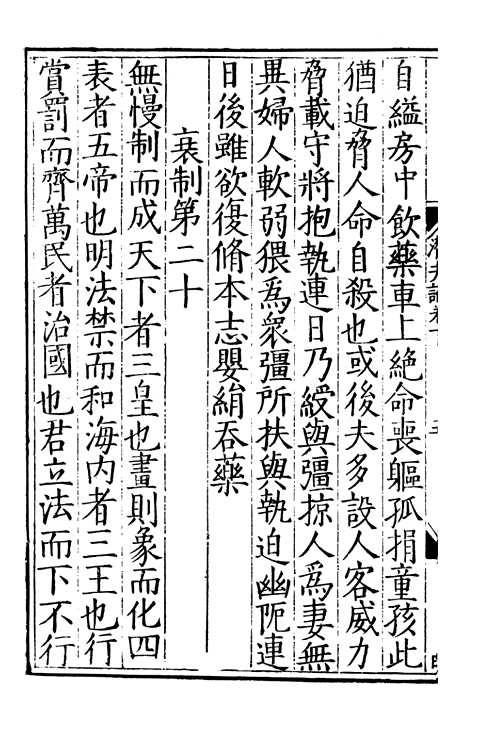 自縊房中飲藥車上絶命喪軀孤捐童孩此
猶迫脅人命自殺也或後夫多設人客威力
脅載守將抱執連日乃緩與彊掠人爲妻無
異婦人軟弱猥爲衆彊所扶與執迫幽阨連
日後雖欲復脩本志嬰絹吞藥
衰制第二十
無慢制而成天下者三皇也畫則象而化四
表者五帝也明法禁而和海内者三王也行
賞罰而齊萬民者治國也君立法而下不行